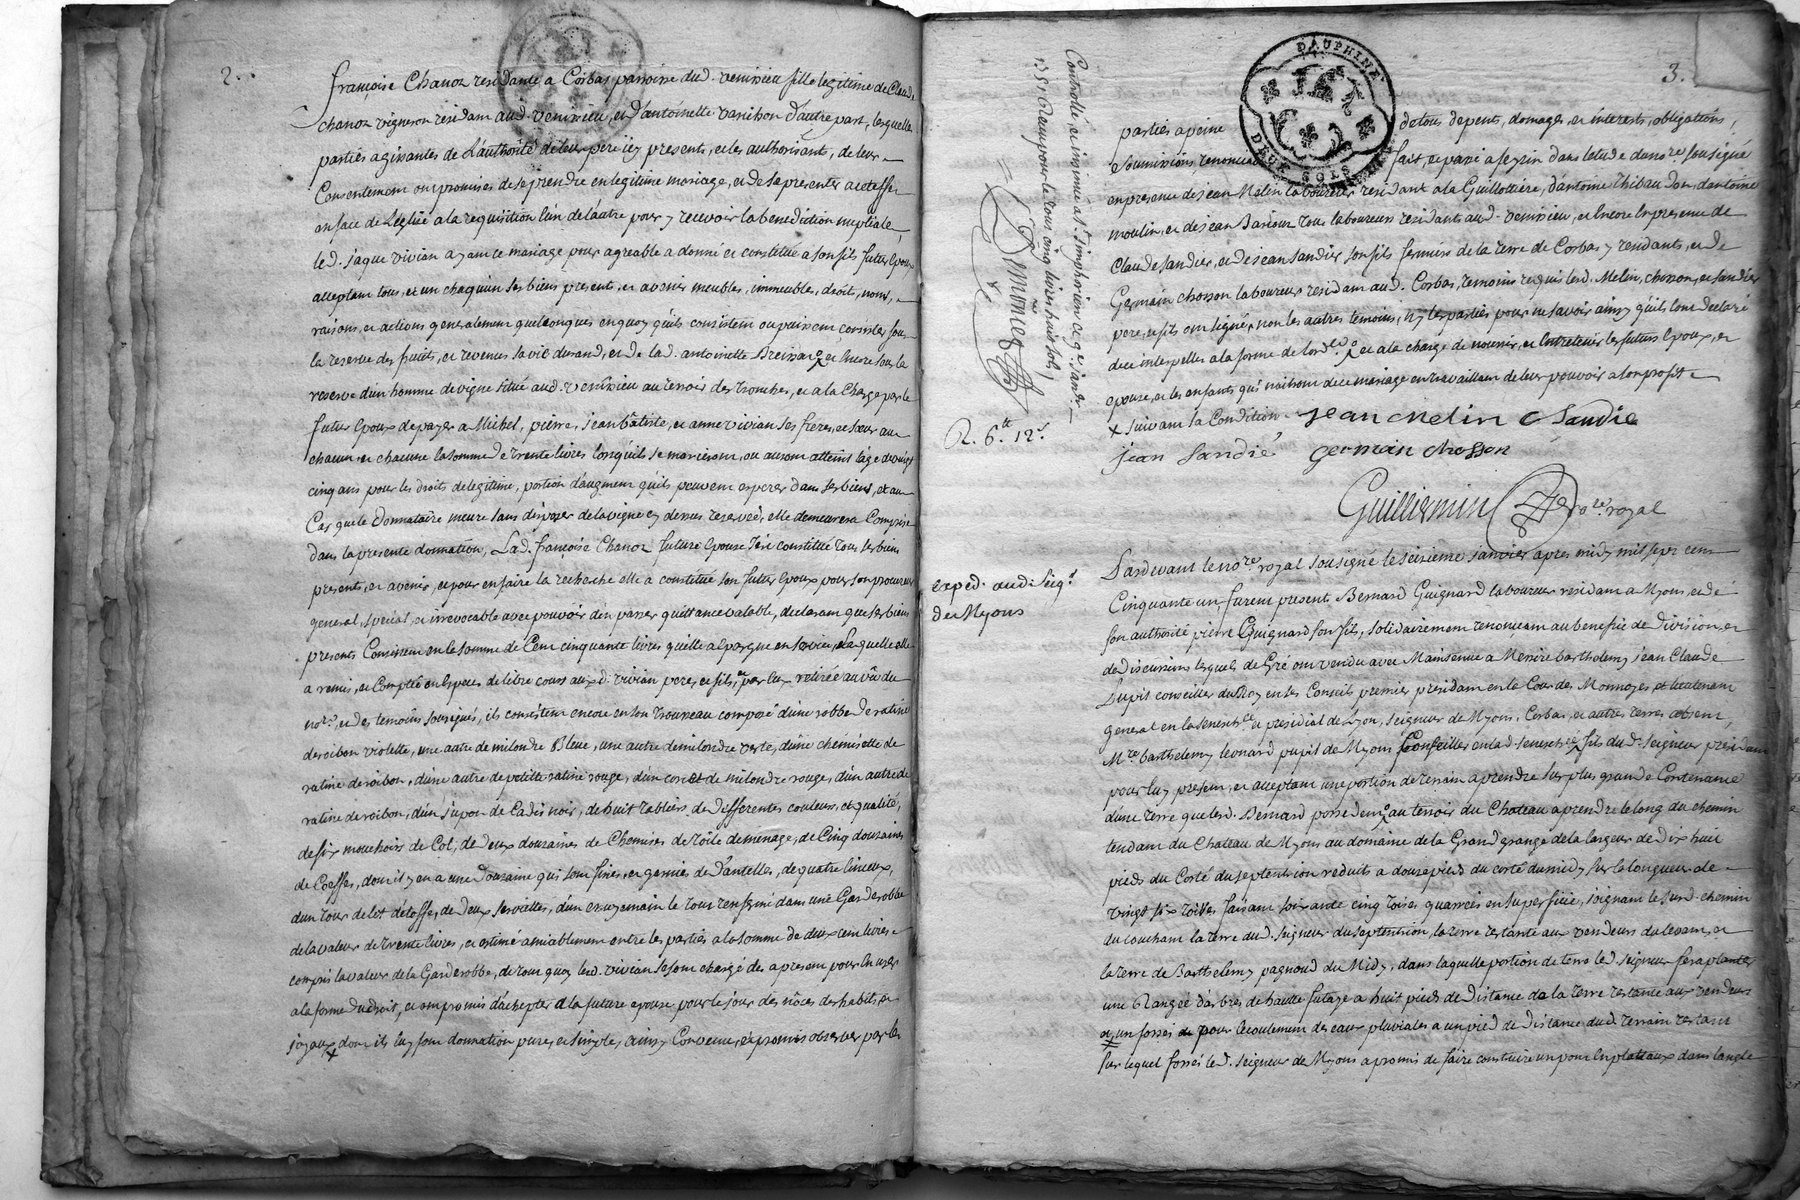 2.
françoise Chanoz residante a Corbas parroisse dud. venissieu fille legitime de Claude
chanoz vigneron residam aud. venissieu, et d'antoinette varichon d'autre part, lesquelles
parties agissantes de L'authorité de leurs pere icy presents, et les authorisant, de leur
Consentement ont promises de se prendre en legitime mariage, et de se presenter a cet effet
en face de L'eglise a la requisition l'un de l'autre pour y recevoir la benediction nuptiale,
led. jaque vivian ayant ce mariage pour agreable a donné et constitué a son fils futur epoux
acceptam tous, et un chaquun ses biens present, et avenir meubles, immeubles, droit, noms,
raisons, et actions generalement quelconques en quoy qu'ils consistent ou puissent consister sous
la reserve des fruits, et revenus sa vie durand, et de lad. antoinette et encore sous la
reserve d'un homme de vigne situé aud. venissieu au terroir des tronches, et a la charge par le
futur epoux de payer a Michel, pierre, jean bâtiste, et anne vivian ses freres, et sœur au
chacun et chacune la somme de trente livres lors qu'ils se marieront, ou auront atteint l'age de vingt
cinq ans pour les droits de legitime, portion d'augment qu'ils peuvent esperer dans ses biens, et au
Cas que le Donnataire meure sans disposer de la vigne cy dessus reservée, elle demeurera Comprise
dans la presente donnation, Lad. françoise Chanoz future epouse s'est constitué tous ses biens
presents, et avenir, et pour en faire la recherche elle a constitué son futur epoux pour son procureur
general, special, et irrevocable avec pouvoir d'en passer quittance valable, declarant que ses biens
presents Consistent en la somme de Cent cinquante livres quelle a epargné en service, Laquelle elle
a remis, et Comptée en especes de libre cours auxd. vivian pere, et fils, et par eux retirée au vû du
nore. et des temoins soussignés, ils consistent encore en son trousseau composé d'une robbe de ratine
de roibon violette, une autre de milondre Bleue, une autre de milondre verte, d'une chemisette de
ratine de roibon, d'une autre de petitte ratine rouge, d'un corcet de milondre rouge, d'un autre de
ratine de roibon, d'un jupon de Cadis noir, de huit tabliers de differentes couleurs, et qualité,
de six mouchoirs de Col, de deux douzaines de Chemises de toile de menage, de Cinq douzaines
de Coeffes, dont il y en a une Douzaine qui sont fines, et garnies de d'antelles, de quatre linceux,
d'un tour de lit d'etoffe, de deux serviettes, d'un essuyemain le tout renfermé dans une Garderobbe
de la valeur de trente livres, et estimé amiablement entre les parties a la somme de deux cent livres
compris la valeur de la Garderobbe, de tout quoy lesd. vivian se sont chargé des a present pour en user
a la forme du droit, et ont promis d'achepter a la future epouse pour le jour des nôces des habits, et
joyaux dont ils luy font donnation pure, et simple, ainsy Convenu, et promis observer par les
3.
DAUPHINÉ
DEUX SOLS
parties a peine de tous depents, domages, et intérests, obligations,
soumissions, renonciat fait, et passé a seyzin dans l'etude du nore. soussigné
en presence de jean Melin laboureur residant a la Guillottiere, d'antoine Thibaudon, d'antoine
moulin, et de jean Barioz tous laboureurs residants aud. venissieu, et encore en presence de
Claude sandier, et de jean sandier son fils fermiers de la terre de Corbas y rendants, et de
Germain chosson laboureur residam aud. Corbas, temoins requis lesd. Melin, chosson, et sandier
pere, et fils ont signé, non les autres temoins, ny les parties pour ne savoir ainsy qu'ils l'ont declaré
de ce interpellés a la forme de l'ordce. et a la charge de nourrir, et entretenir les futurs epoux, et
epouse, et les enfants qui naitront de ce mariage en travaillant de leur pouvoir a son profit
+ suivant la Condition jean Melin C Sandie
jean Sandié germain chosson
Guilliermin nore. royal
Controllé, et insinué a St. simphorien
1751 Reçu pour le tout cinq livres huit sols
R. 6lt 12s
exped. aud. seigr.
de Myons
Pardevant le nore. royal soussigné le seizieme janvier apres midy mil sept cent
Cinquante un, furent present Bernard Guignard laboureur residam a Myons, et de
son authorité pierre Guignard son fils, solidairement renonceant au benefice de division, et
de discussion lesquels de Gré ont vendu avec Maintenue a Messire barthelemy jean Claude
Pupil conseiller du Roy en ses Conseils premier presidant en la Cour des Monnoyes et lieutenant
general en la senechcée. et presidial de Lyon, seigneur de Myons, Corbas, et autres terres absent,
Mre. barthelemy leonard pupil de Myons Conseiller en lad. senechcée. fils dud. seigneur president
pour luy present, et acceptant une portion de terrain a prendre sur plus grande Contenance
d'une terre que lesd. Bernard possedent au terroir du Chateau a prendre le long du chemin
tendant du Chateau de Myons au domaine de la Grand grange de la largeur de Dix huit
pieds du Corté du septentrion reduits a douze pied du corté du midy sur la longueur de
vingt six toises faisant soixante cinq toises quarrées en superficie, joignant le susd. chemin
du couchant la terre dud. seigneur du septentrion, la terre restante aux vendeurs du levant, et
la terre de Barthelemy pagnoud du Midy, dans laquelle portion de terre led. seigneur fera planter
une Rangée d'arbres de hautte futaye a huit pieds de Distance de la terre restante aux vendeurs
et un fossé pour l'ecoulement des eaux pluviales a un pied de Distance dud. terrain restant
sur lequel fossé led. seigneur de Myons a promis de faire construire un pont en plateaux dans l'angle